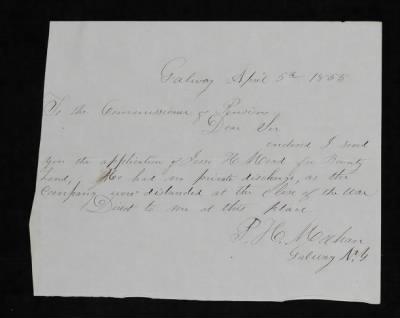 Galway April 5th 1855
To the Commissioner of Pensions
Dear Sir
enclosed I send
you the application of Jesse H. Mead for Bounty
land, He had no private discharge, as the
Company was disbanded at the close of the War
Direct to me at this place
P. H. Meehan
Galway N.Y.